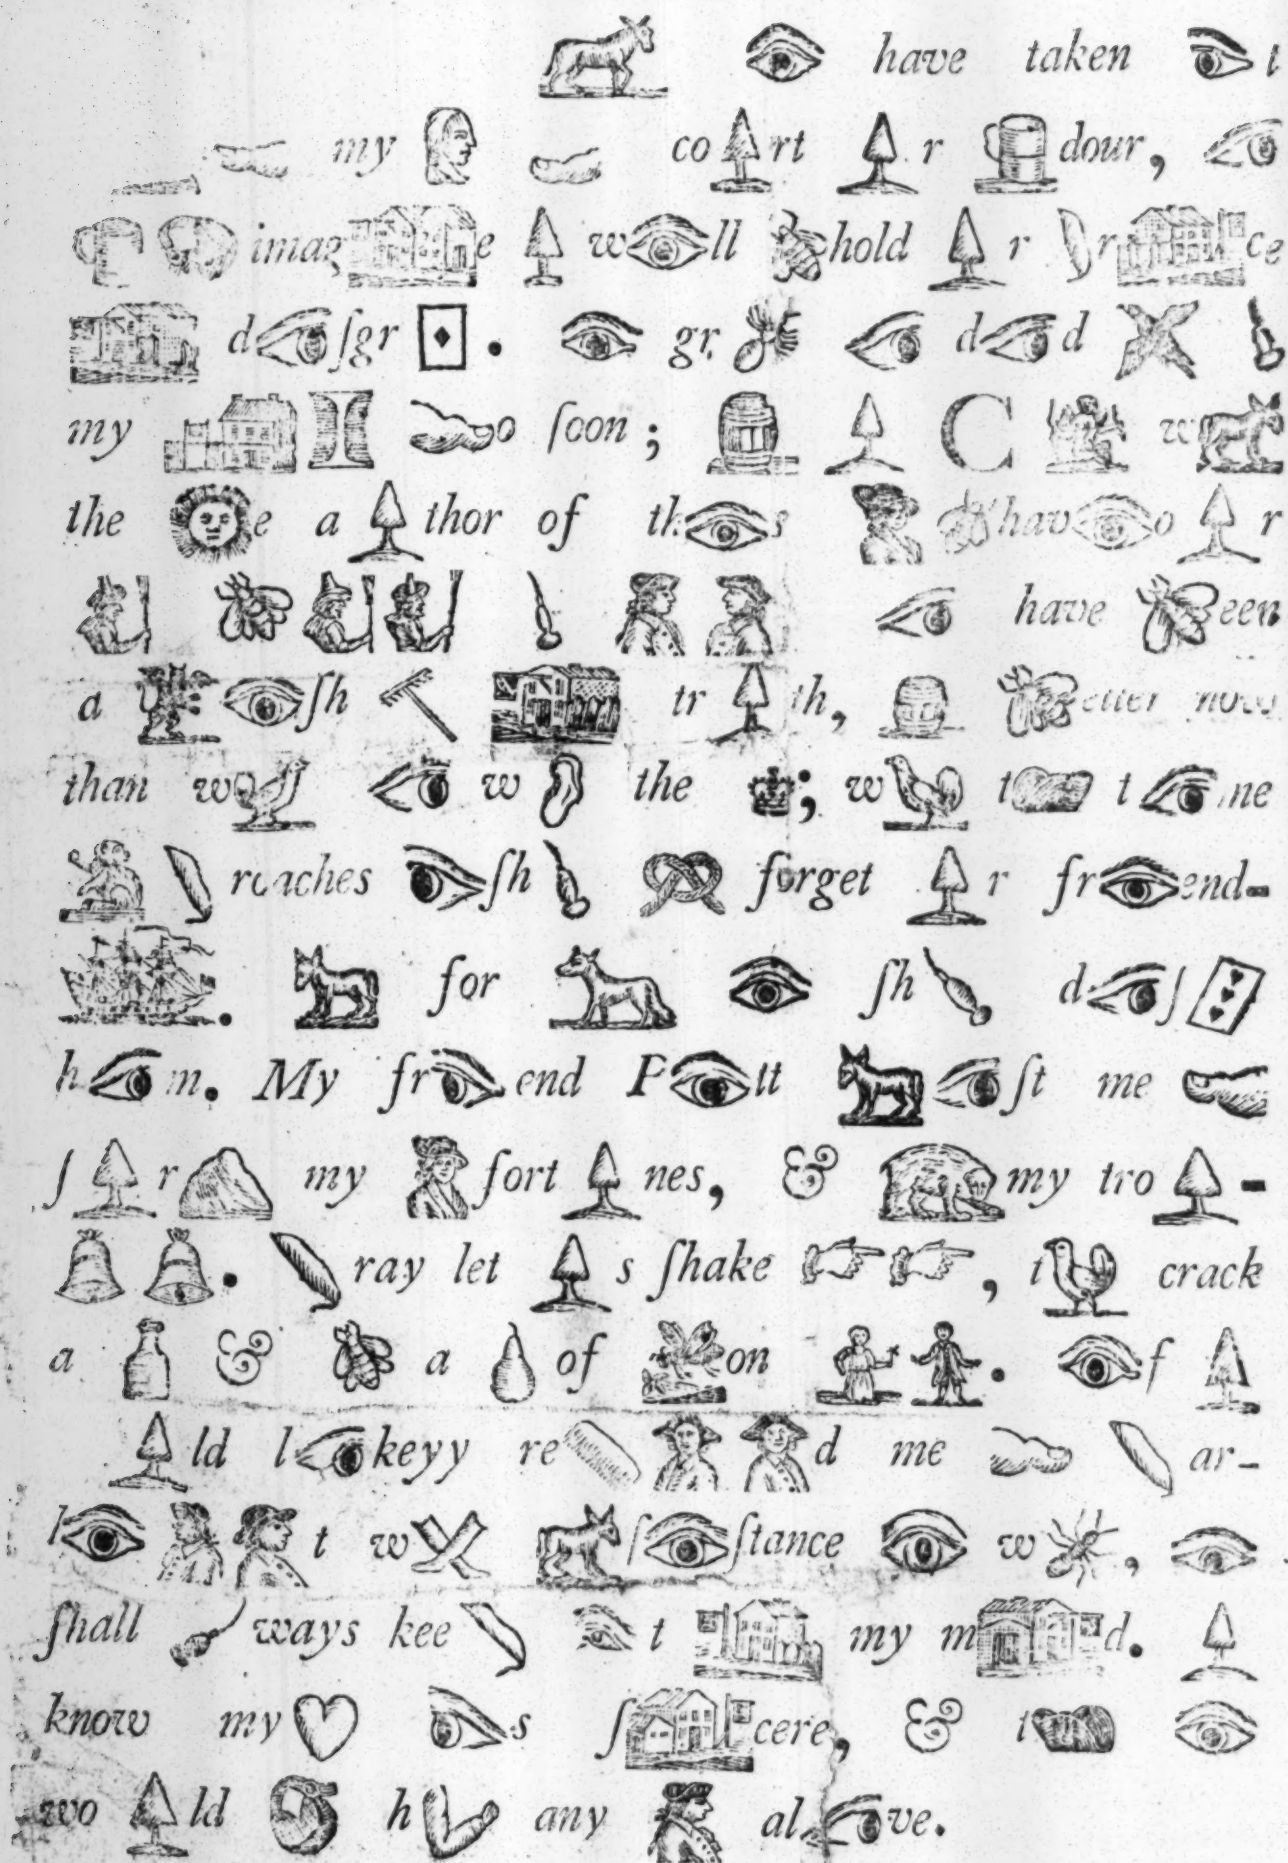 have taken t
my co rt r dour,
imag e w ll hold r r ce
d ſgr . gr d d
my o ſoon; C w
the e a thor of th s hav o r
have een
a ſh tr th, etter
than w w the ; w t t me
roaches ſh forget r fr end-
. for ſh d ſ
h m. My fr end P tt ſt me
ſ r my fort nes, & my tro -
. ray let s ſhake , t crack
a & a of on . f
ld l keyy re d me ar-
l t w ſ ſtance w ,
ſhall ways kee t my m d.
know my s ſ cere, & t
wo ld h any al ve.